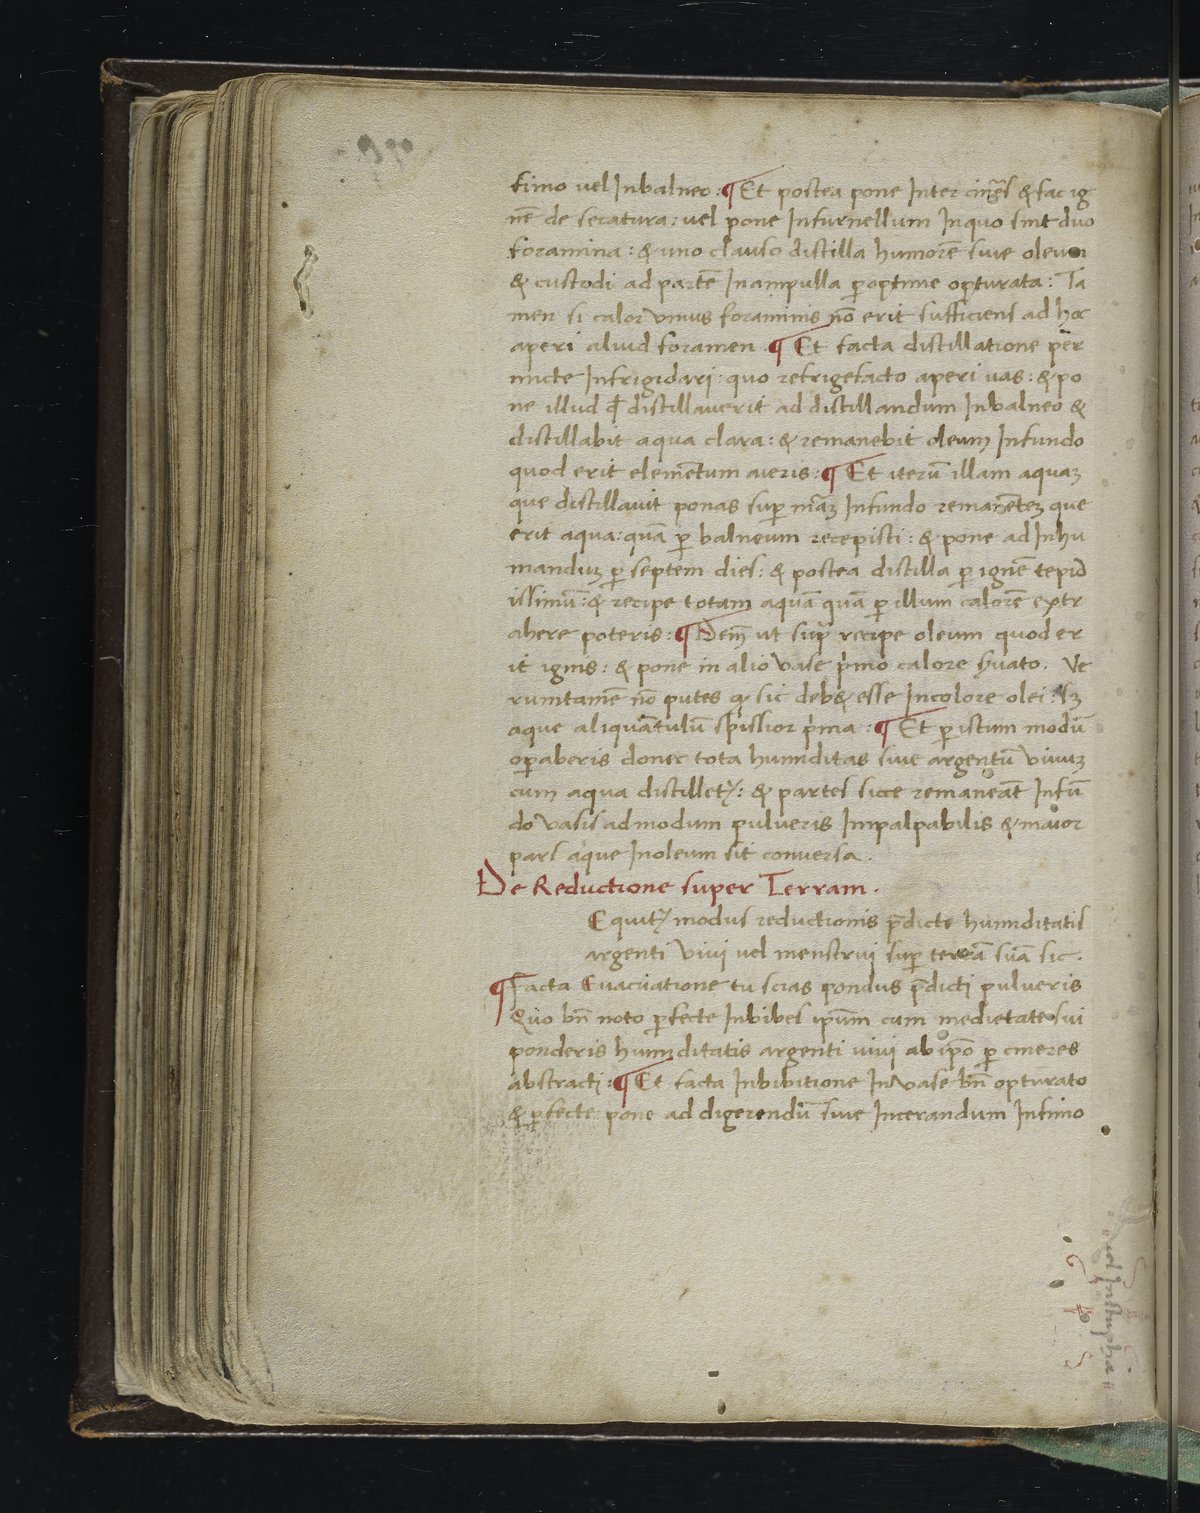 fimo vel Inbalneo: ¶ Et postea pone Inter cin̄es & fac ig
nē de secatura: vel pone Infurnellum Inquo sint duo
foramina: & uno clauso distilla humorē siue oleum
& custodi ad partē Inampulla ꝑoptime opturata: Ta
men si calor vnius foraminis nō erit sufficiens ad hoc
aperi aliud foramen ¶ Et facta distillatione per
micte Infrigidari: quo refrigefacto aperi uas: & po
ne illud qđ distillauerit ad distillandum Inbalneo &
distillabit aqua clara: & remanebit oleum Infundo
quod erit elemētum aieris: ¶ Et iterū illam aquaꝫ
que distillauit ponas suꝑ māꝫ Infundo remanēteꝫ que
erit aqua: quā ꝑ balneum recepisti: & pone ad Inhu
manduꝫ ꝑ septem dies: & postea distilla ꝑ ignē tepid
issimū: & recipe totam aquā quā ꝑ illum calorē extr
ahere poteris: ¶ Dem̄ ut supͣ recipe oleum quod er
it ignis: & pone in alio vase pͥmo calore ẜuato. Ve
rumtamē nō putes ꝙ sic deb& esse Incolore olei: sꝫ
aque aliquātulū spissior pͥma: ¶ Et ꝑ istum modū
oꝑaberis donec tota humiditas siue argentū viuuꝫ
cum aqua distilletᷣ: & partes sicce remaneāt Infū
do vasis ad modum pulueris Impalpabilis & maior
pars aque Inoleum sit conuersa.
De Reductione super Terram.
Equitᷣ modus reductionis p̄dicte humiditatis
argenti vivi vel menstrui suꝑ terrā suā sic.
¶ Facta Euacuatione tu scias pondus p̄dicti pulueris
Quo bn̄ noto ꝑfecte Inbibes ip̄um cum medietate sui
ponderis humiditatis argenti uivi ab ip̄o ꝑ cineres
abstracti: ¶ Et facta Inbibitione Invase bn̄ opturato
& ꝑfecte pone ad digerendū siue Incerandum Infimo
vel Instupha